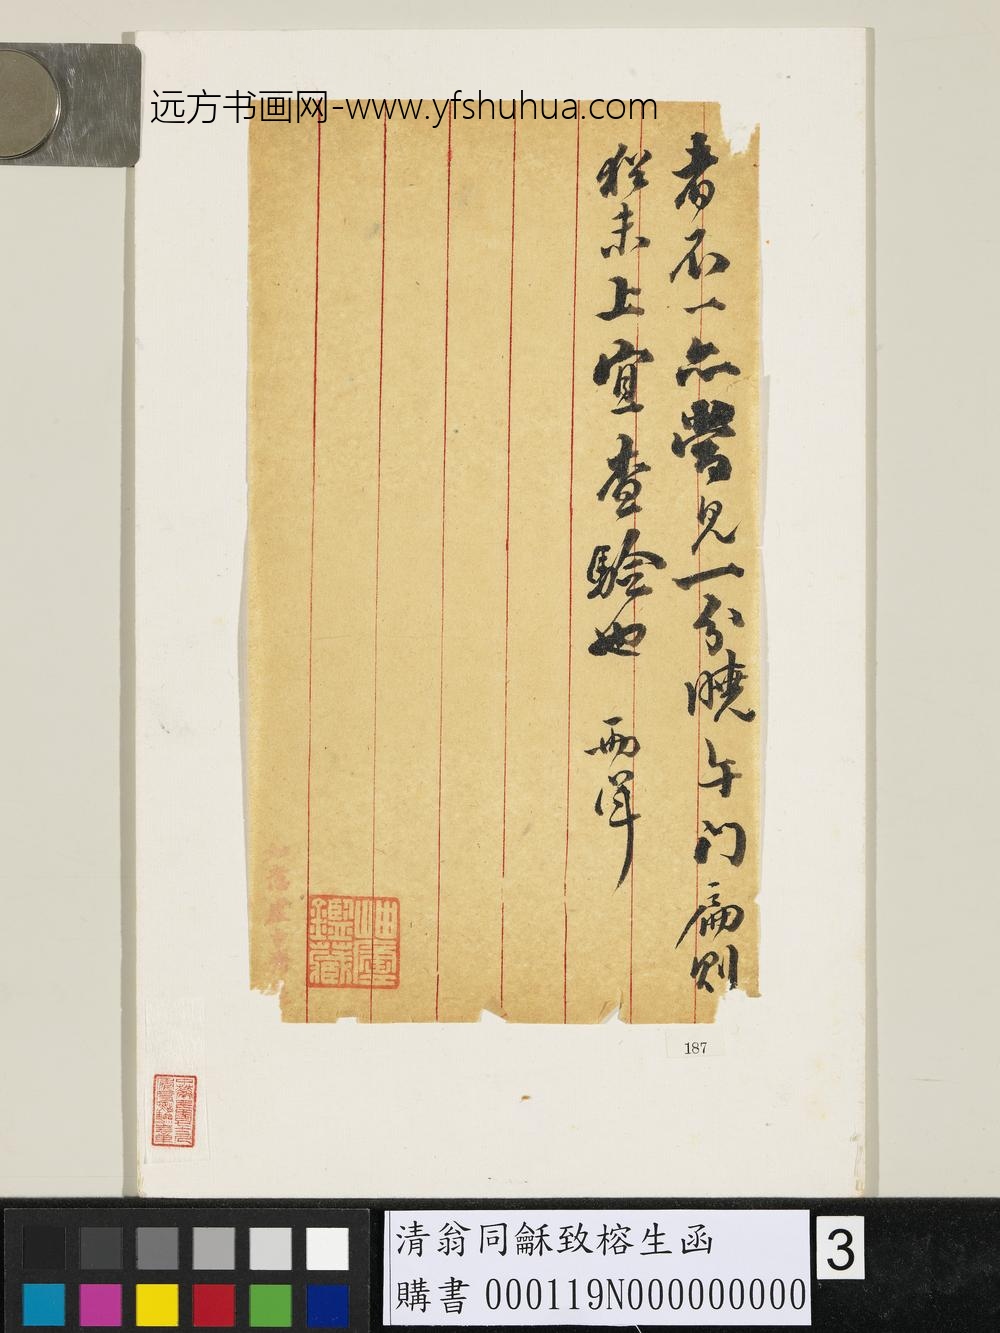 远方书画网-www.yfshuhua.com
者不一亦嘗見一分曉午门扁则
猶未上宜查驗也 兩渾
岫雲鑑藏
187
清翁同龢致榕生函
購書 000119N000000000
3